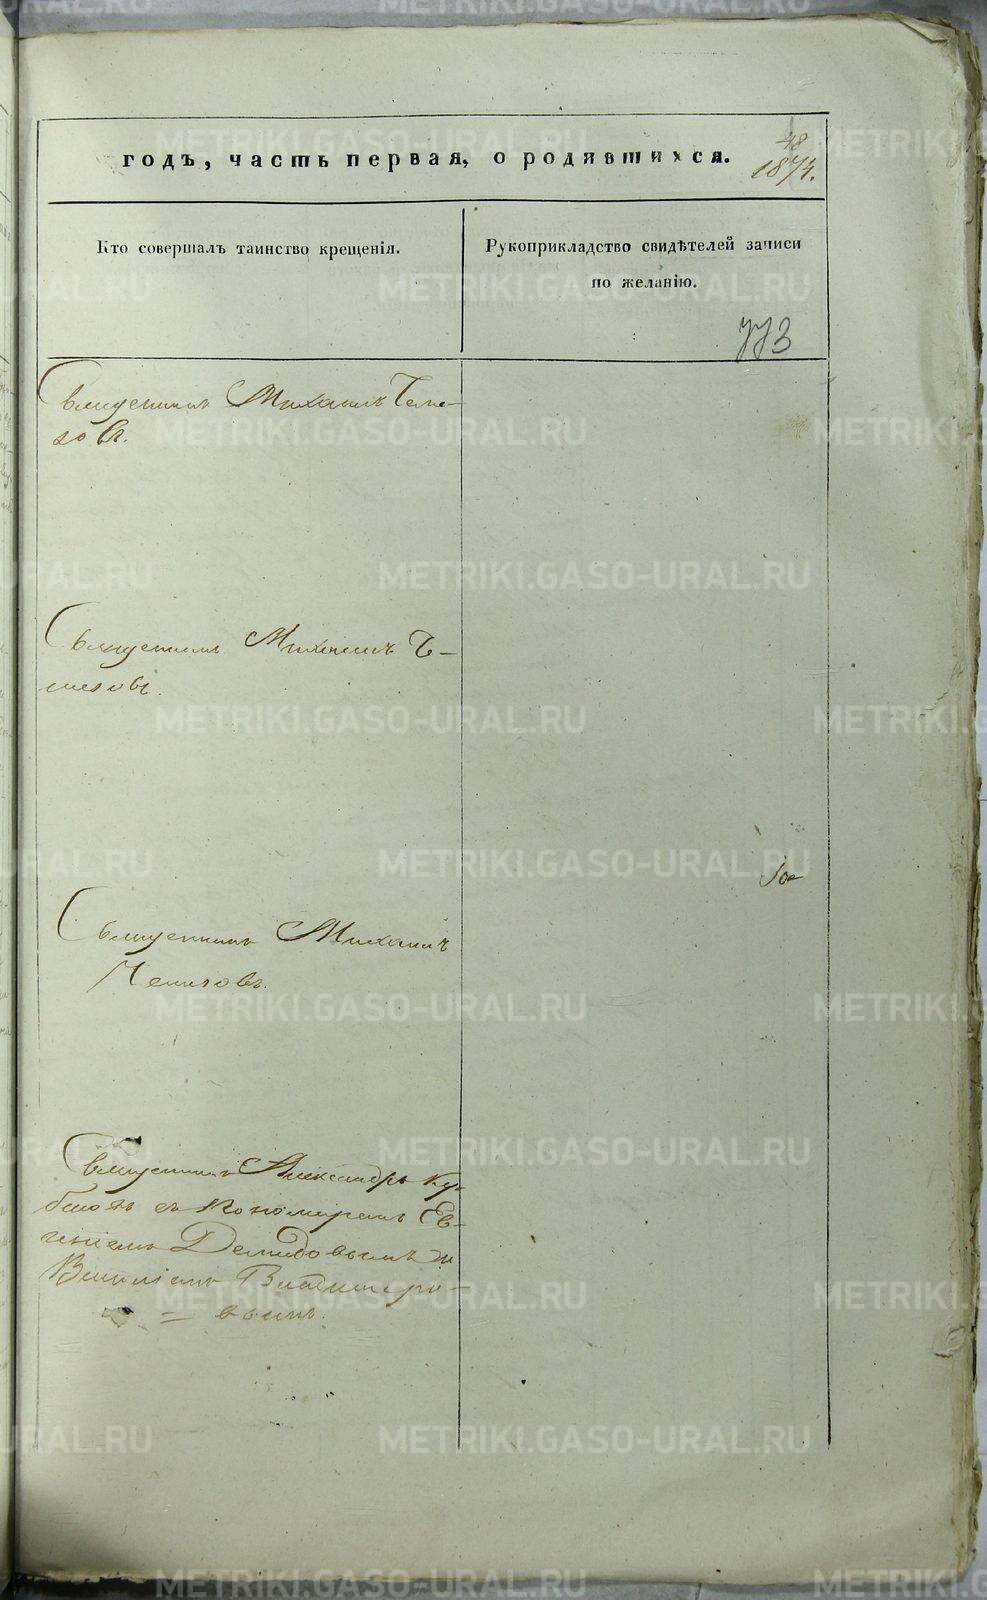 годъ, часть первая, о родившихся.
48
1874.
Кто совершалъ таинство крещенія.
Рукоприкладство свидѣтелей записи
по желанію.
773
Священникъ Михаилъ Теме-
зовъ.
Священникъ Михаилъ
Священникъ Михаилъ
Священникъ Александръ
съ Пономаремъ Ев-
геніемъ Демидовымъ и
вымъ.
METRIKI.GASO-URAL.RU